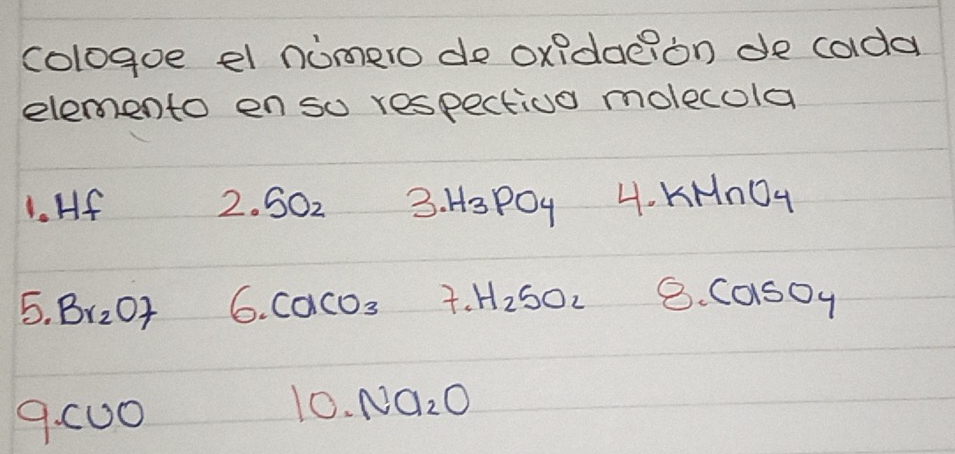 coloqoe el número de oxidación de cada
elemento en su respectiva molecola
1. Hf 2. SO2 3. H3PO4 4. KMnO4
5. Br2O7 6. CaCO3 7. H2SO2 8. CaSO4
9. CUO 10. Na2O